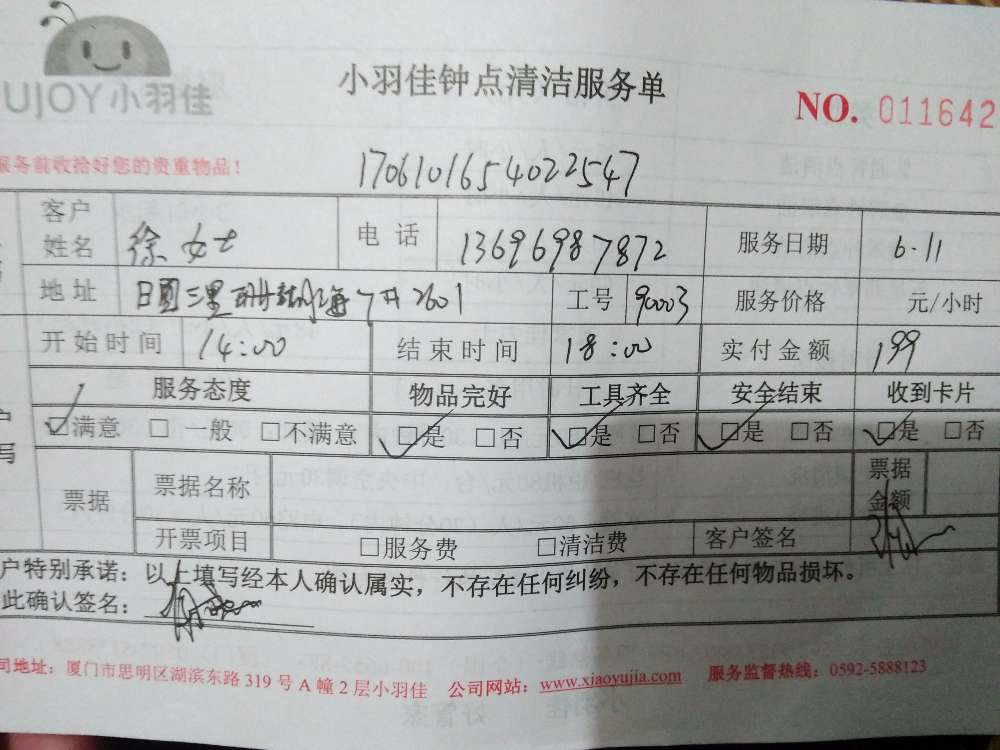 UJOY小羽佳
小羽佳钟点清洁服务单
NO. 011642
服务前收拾好您的贵重物品!
1706101654022547
客户姓名 徐女士 电话 13696987872 服务日期 6.11
地址 日圆三里 7 2601 工号 90003 服务价格 元/小时
开始时间 14:00 结束时间 18:00 实付金额 199
服务态度 物品完好 工具齐全 安全结束 收到卡片
☑满意 □一般 □不满意 ☑是 □否 ☑是 □否 ☑是 □否 ☑是 □否
票据 票据名称 票据金额
开票项目 □服务费 □清洁费 客户签名
户特别承诺:以上填写经本人确认属实,不存在任何纠纷,不存在任何物品损坏。
此确认签名:
司地址:厦门市思明区湖滨东路319号A幢2层小羽佳 公司网站:www.xiaoyujia.com 服务监督热线:0592-5888123